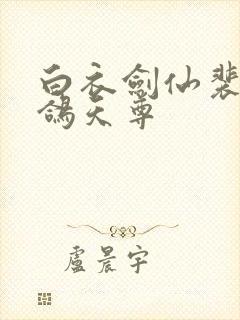 白衣劍仙裴
鴿天尊
盧晨宇